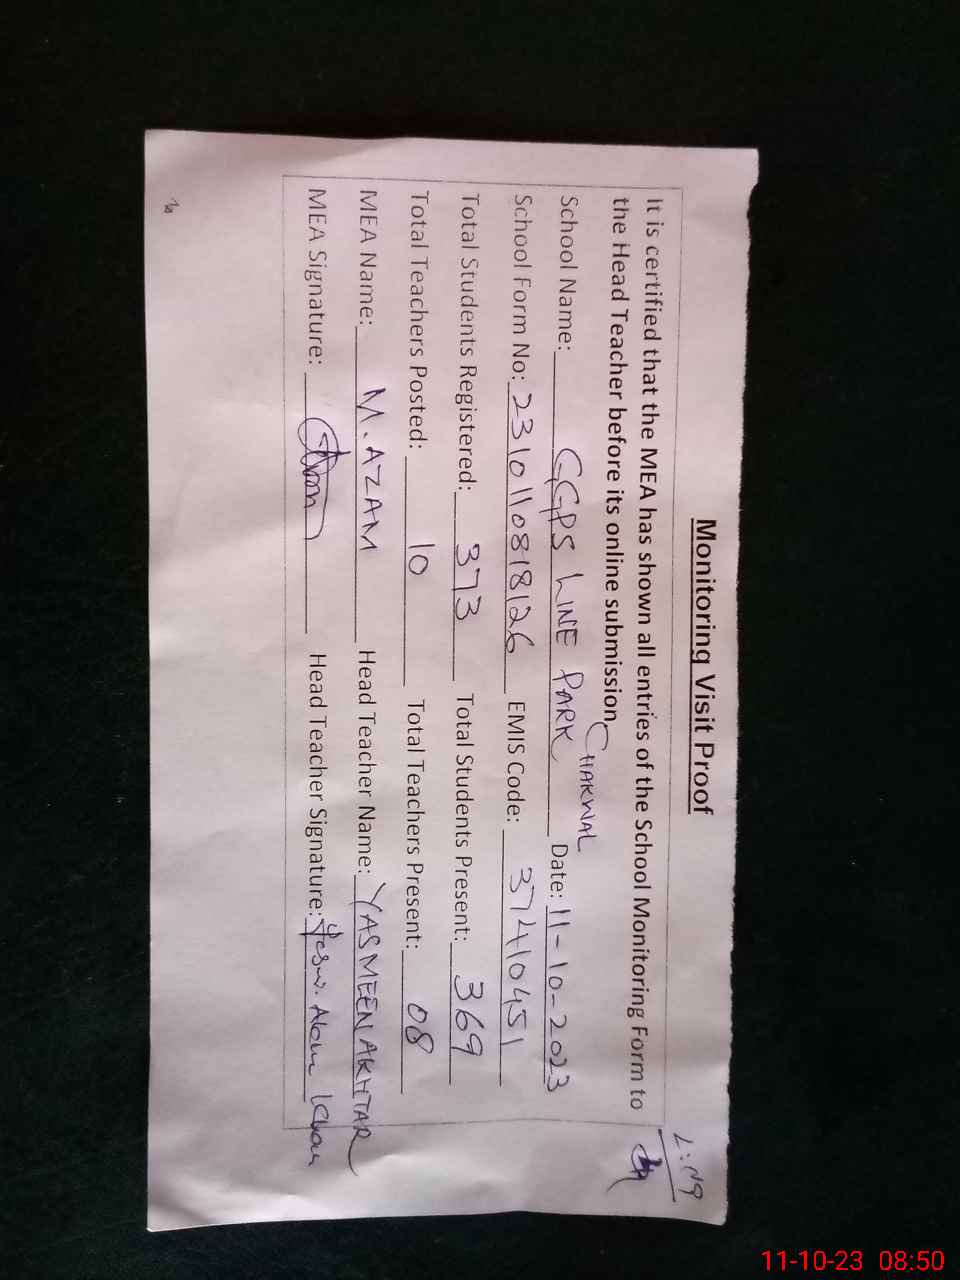 Monitoring Visit Proof
It is certified that the MEA has shown all entries of the School Monitoring Form to
the Head Teacher before its online submission
School Name: GGPS LINE PARK CHAKWAL Date: 11-10-2023
School Form No: 2310110818126 EMIS Code: 37410451
Total Students Registered: 373 Total Students Present: 369
Total Teachers Posted: 10 Total Teachers Present: 08
MEA Name: M. AZAM Head Teacher Name: YASMEEN AKHTAR
MEA Signature: Head Teacher Signature: Khan
11-10-23 08:50